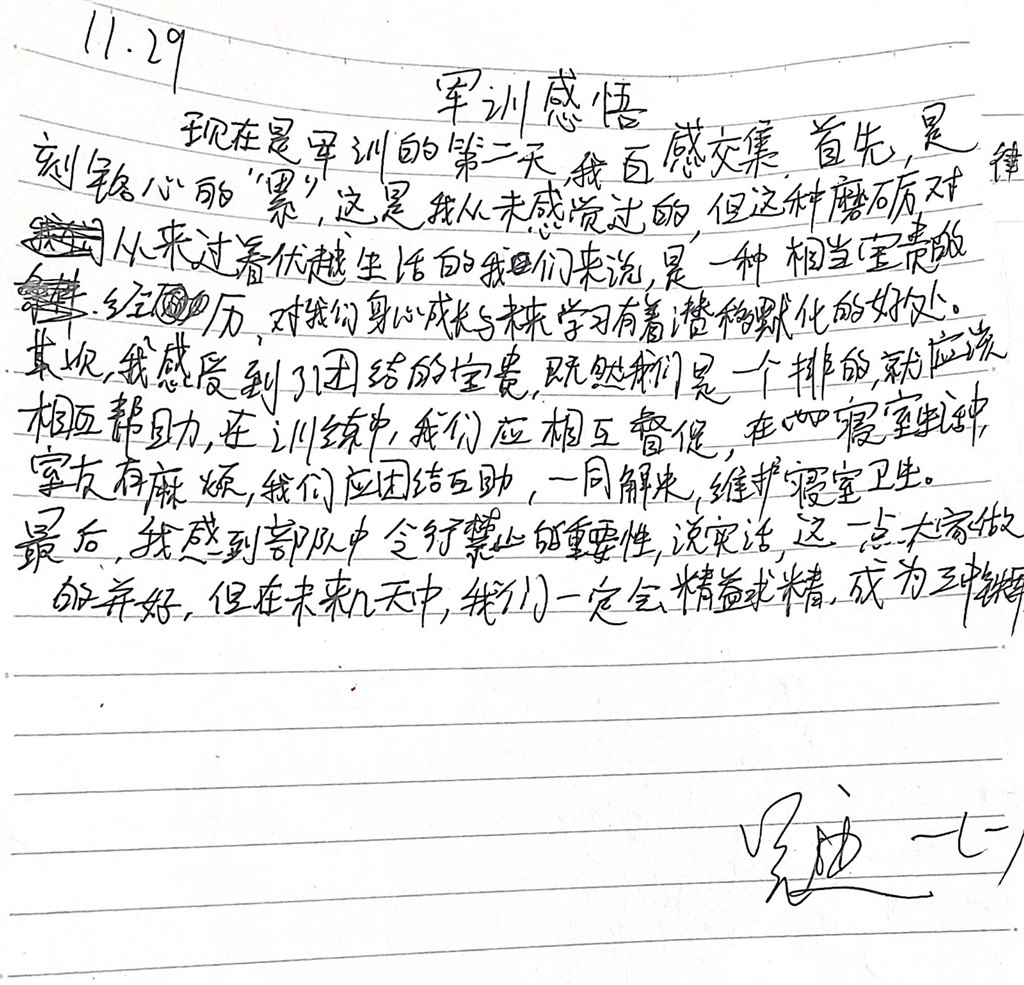 11.29
军训感悟
现在是军训的第二天,我百感交集.首先,是
刻铭心的"累",这是我从未感觉过的,但这种磨砺对
从来过着优越生活的我们来说,是一种相当宝贵的
经历,对我们身心成长与未来学习有着潜移默化的好处。
其次,我感受到了团结的宝贵,既然我们是一个排的,就应该
相互帮助,在训练中,我们应相互督促,在寝室生活中,
室友有麻烦,我们应团结互助,一同解决,维护寝室卫生。
最后,我感到部队中令行禁止的重要性,说实话,这一点大家做
的并好,但在未来几天中,我们一定会精益求精,成为三中铁军
律